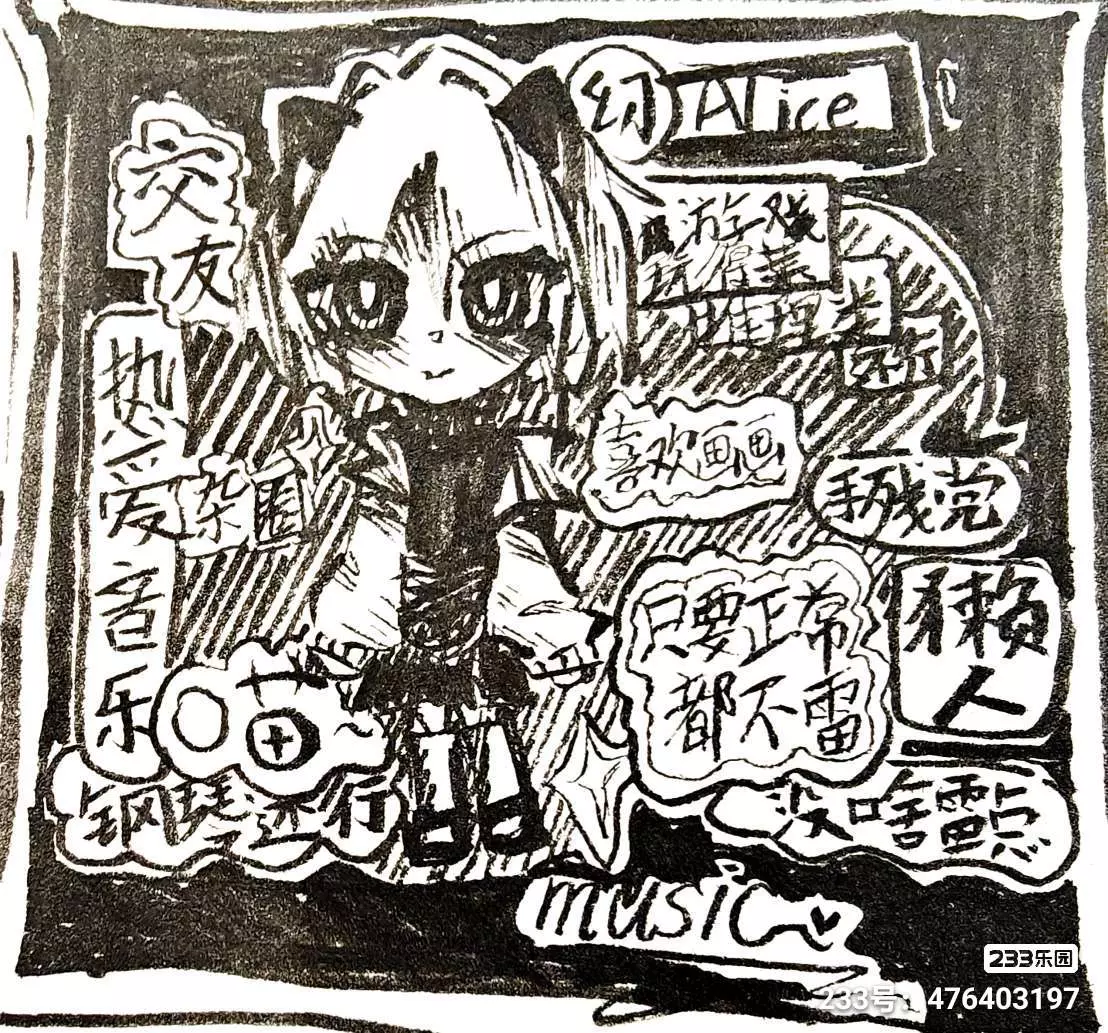 幻 Alice
交友
游戏
玩得菜
推理类
还行
热爱音乐
杂圈
喜欢画画
手残党
只要正常
都不雷
懒人
喵
钢琴还行
没啥雷点
music
233乐园
233号：476403197